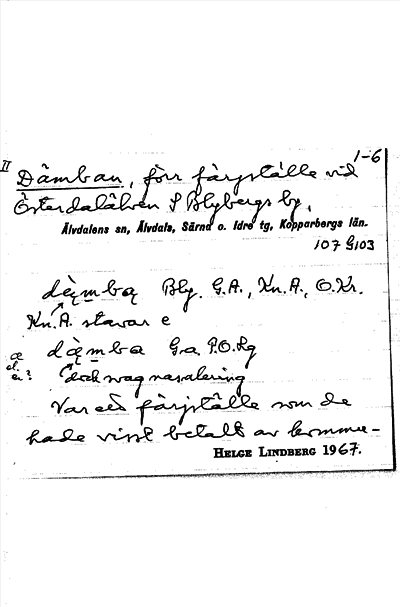 1-6
II
Dämban, förr färjställe vid
Österdalälven S Blybergs by,
Älvdalens sn, Älvdals, Särna o. Idre tg, Kopparbergs län.
107 G103
dę̀mbą Bly. G.A., Kn.A., O.Kr.
Kn.A. stavar e
dą̀mba Ga P.O.Lg
æ
el.
e?
dock svag nasalering
Var ett färjställe som de
hade visst betalt av kommu-
HELGE LINDBERG 1967.